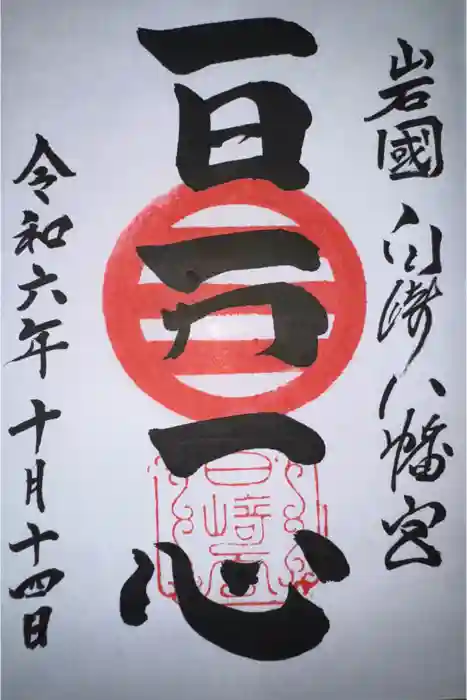 岩國 白崎八幡宮
一日一力一心
令和六年十月十四日